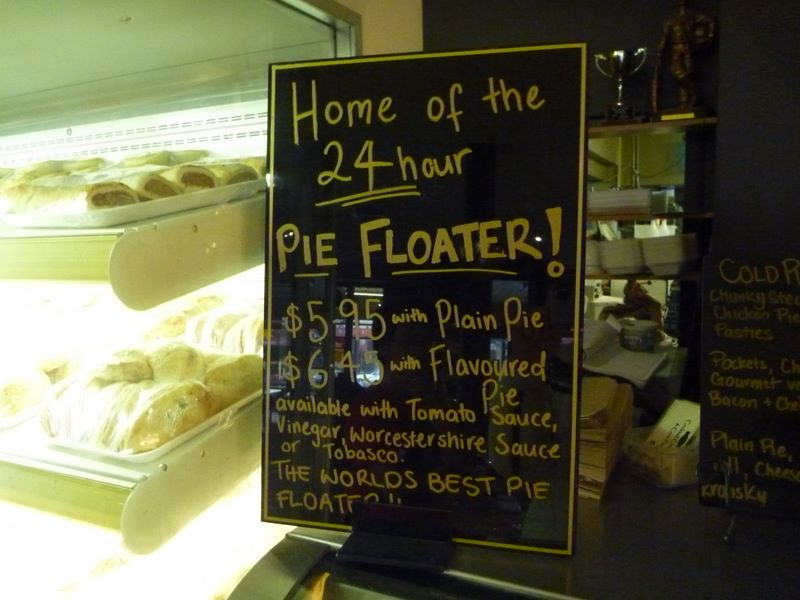 Home of the
24 hour
PIE FLOATER!
$5.95 with Plain Pie
$6.45 with Flavoured
Pie
available with Tomato Sauce,
Vinegar, Worcestershire Sauce
or Tobasco.
THE WORLDS BEST PIE
FLOATER!!
COLD
Chunky
Chicken Pie
Pasties
Pockets,
Gourmet
Bacon +
Plain Pie,
Cheese
Kransky